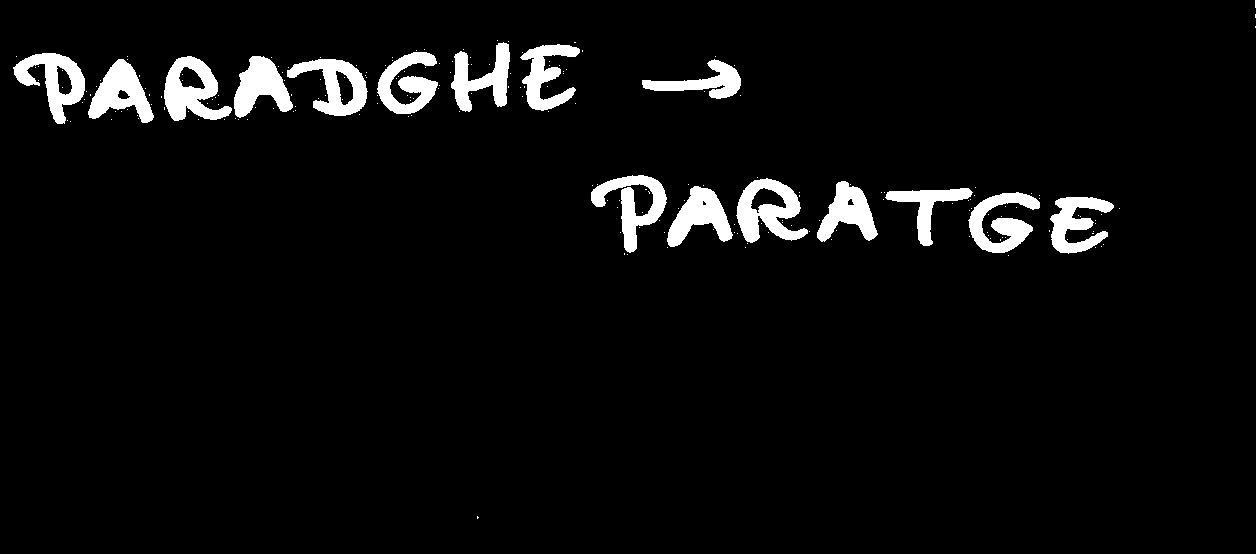 PARADGHE →
PARATGE